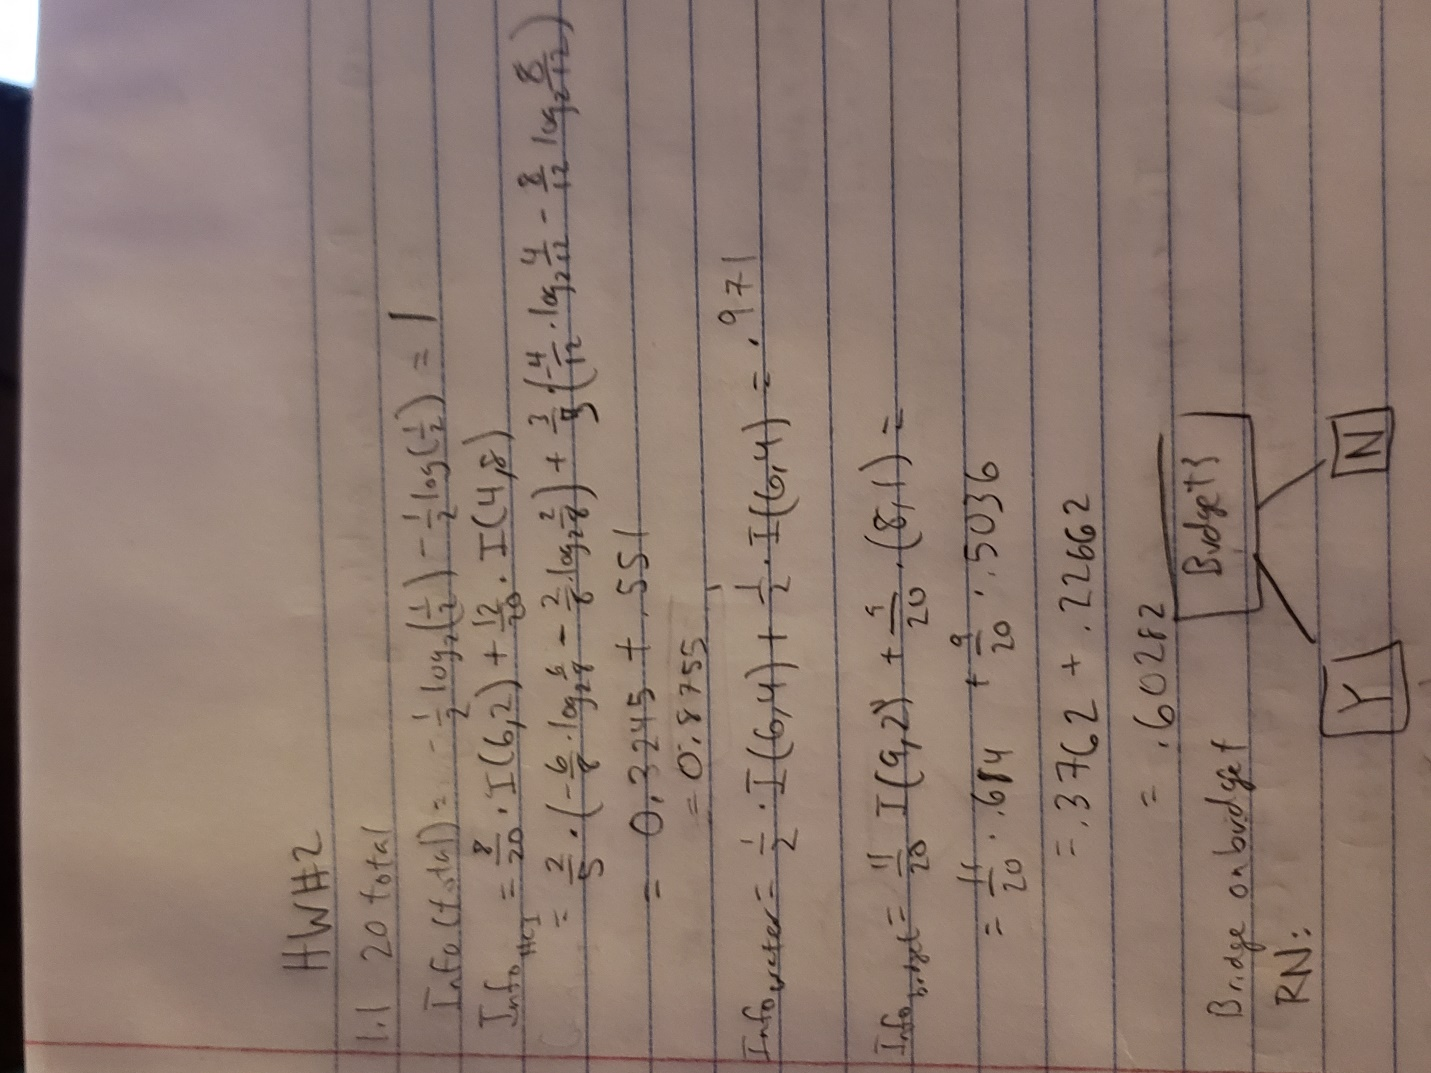 HW#2
1.1 20 total
Info(total) = -1/2 log₂(1/2) - 1/2 log(1/2) = 1
Info_HCI = 8/20 · I(6,2) + 12/20 · I(4,8)
= 2/5 · (-6/8 · log₂ 6/8 - 2/8 · log₂ 2/8) + 3/5 (-4/12 · log₂ 4/12 - 8/12 log₂ 8/12)
= 0.3245 + .551
= 0.8755
Info_water = 1/2 · I(6,4) + 1/2 · I(6,4) = .971
Info_budget = 11/20 I(9,2) + 9/20 · (8,1) =
= 11/20 · .684 + 9/20 · .5036
= .3762 + .22662
= .60282
Bridge on budget
Budget?
RN:
Y N